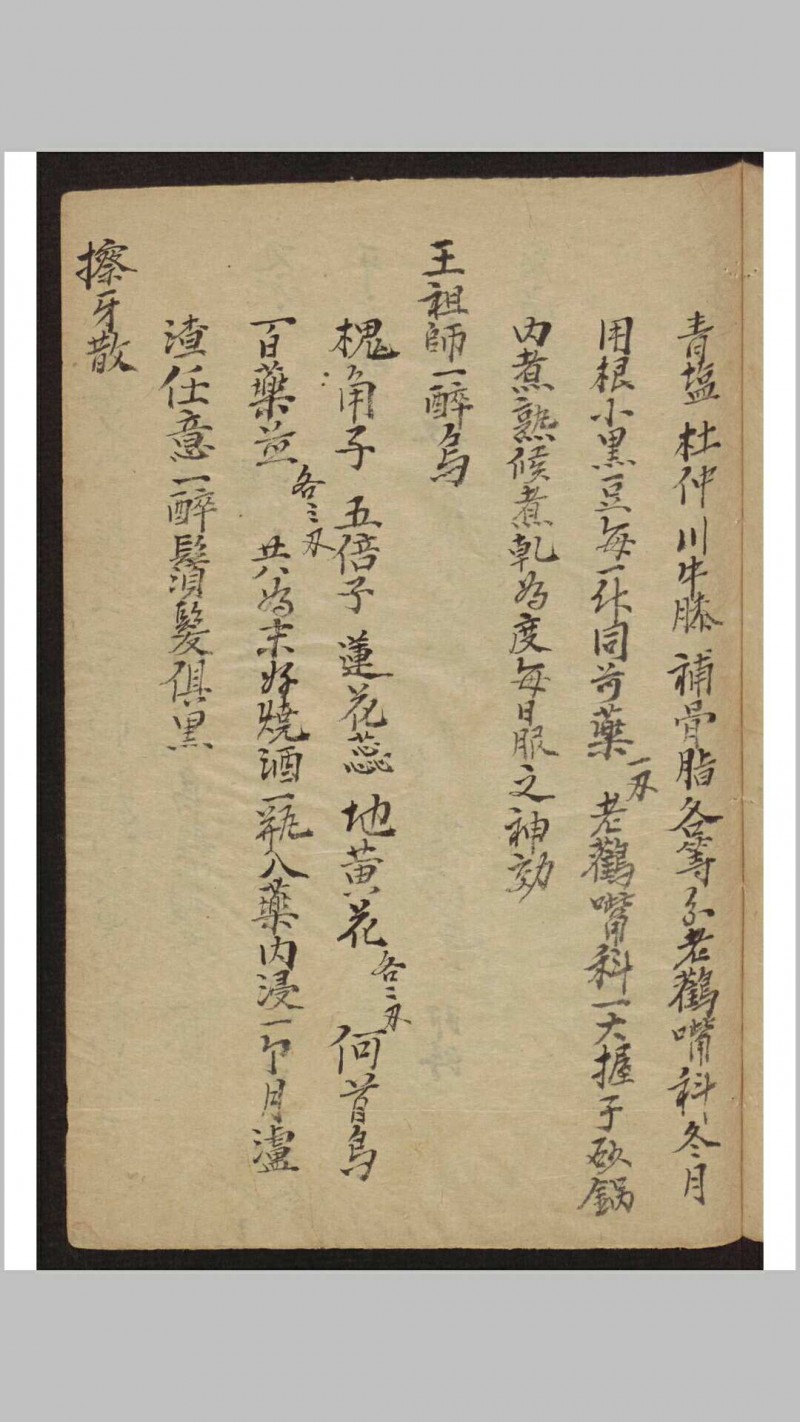 青塩杜仲川牛膝補骨脂各等分老鸛嘴科冬月
用根小黑豆每一升同前藥一刄老鸛嘴科一大握于砂鍋
内煮熟候煮乾為度每日服之神効
王祖師一醉烏
槐角子 五倍子 蓮花蕊 地黃花各二刄 何首烏
百藥煎各三刄 共為末好燒酒一瓶入藥内浸一个月瀘
渣任意一醉鬚髮俱黑
擦牙散